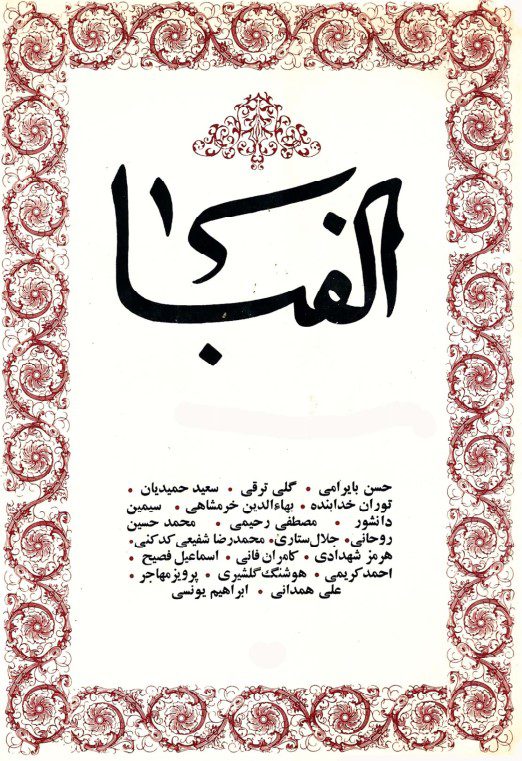 الفبا
حسن بایرامی • گلی ترقی • سعید حمیدیان •
توران خدابنده • بهاءالدین خرمشاهی • سیمین
دانشور • مصطفی رحیمی • محمد حسین
روحانی • جلال ستاری • محمدرضا شفیعی کدکنی •
هرمز شهدادی • کامران فانی • اسماعیل فصیح •
احمد کریمی • هوشنگ گلشیری • پرویز مهاجر •
علی همدانی • ابراهیم یونسی